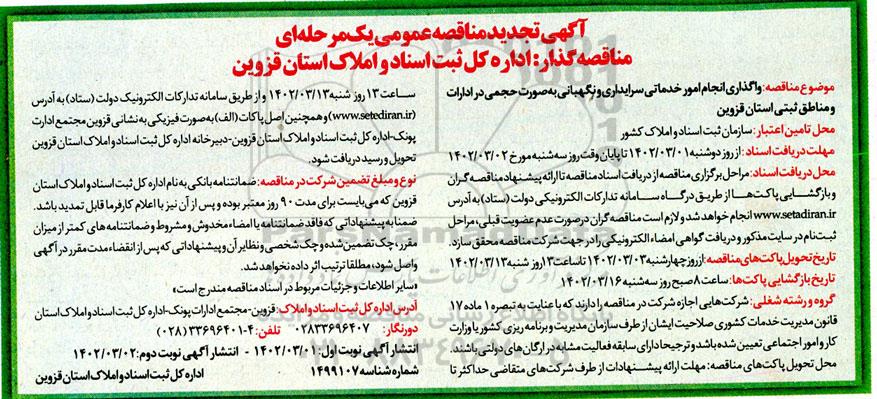 آگهی تجدید مناقصه عمومی یک مرحله‌ای
مناقصه گذار: اداره کل ثبت اسناد و املاک استان قزوین
موضوع مناقصه: واگذاری انجام امور خدماتی سرایداری و نگهبانی به صورت حجمی در ادارات
و مناطق ثبتی استان قزوین
محل تامین اعتبار: سازمان ثبت اسناد و املاک کشور
مهلت دریافت اسناد: از روز دوشنبه ۱۴۰۲/۰۳/۰۱ تا پایان وقت روز سه شنبه مورخ ۱۴۰۲/۰۳/۰۲
محل دریافت اسناد: مراحل برگزاری مناقصه از دریافت اسناد مناقصه تا ارائه پیشنهاد مناقصه گران
و بازگشایی پاکت‌ها از طریق درگاه سامانه تدارکات الکترونیکی دولت (ستاد) به آدرس
www.setadiran.ir انجام خواهد شد و لازم است مناقصه گران در صورت عدم عضویت قبلی، مراحل
ثبت نام در سایت مذکور و دریافت گواهی امضاء الکترونیکی را در جهت شرکت مناقصه محقق سازد.
تاریخ تحویل پاکت‌های مناقصه: از روز چهارشنبه ۱۴۰۲/۰۳/۰۳ تا ساعت ۱۳ روز شنبه ۱۴۰۲/۰۳/۱۳
تاریخ بازگشایی پاکات: ساعت ۸ صبح روز سه شنبه ۱۴۰۲/۰۳/۱۶
گروه و رشته شغلی: شرکت‌هایی اجازه شرکت در مناقصه را دارند که با عنایت به تبصره ۱ ماده ۱۷
قانون مدیریت خدمات کشوری صلاحیت ایشان از طرف سازمان مدیریت و برنامه ریزی کشور یا وزارت
کار و امور اجتماعی تعیین شده باشد و ترجیحا دارای سابقه فعالیت مشابه در ارگان های دولتی باشند.
محل تحویل پاکت‌های مناقصه: مهلت ارائه پیشنهادات از طرف شرکت‌های متقاضی حداکثر تا
ساعت ۱۳ روز شنبه ۱۴۰۲/۰۳/۱۳ و از طریق سامانه تدارکات الکترونیک دولت (ستاد) به آدرس
(www.setediran.ir) و همچنین اصل پاکات (الف) به صورت فیزیکی به نشانی قزوین مجتمع ادارت
پونک-اداره کل ثبت اسناد و املاک استان قزوین-دبیرخانه اداره کل ثبت اسناد و املاک استان قزوین
تحویل و رسید دریافت شود.
نوع و مبلغ تضمین شرکت در مناقصه: ضمانتنامه بانکی به نام اداره کل ثبت اسناد و املاک استان
قزوین که می‌بایست برای مدت ۹۰ روز معتبر بوده و پس از آن نیز با اعلام کارفرما قابل تمدید باشد.
ضمنا به پیشنهاداتی که فاقد ضمانتنامه یا امضاء مخدوش و مشروط و ضمانتنامه های کمتر از میزان
مقرر، چک تضمین شده و چک شخصی و نظایر آن و پیشنهاداتی که پس از انقضاء مدت مقرر در آگهی
واصل شود، مطلقا ترتیب اثر داده نخواهد شد.
«سایر اطلاعات و جزئیات مربوط در اسناد مناقصه مندرج است»
آدرس اداره کل ثبت اسناد و املاک: قزوین-مجتمع ادارات پونک-اداره کل ثبت اسناد و املاک استان
دورنگار: ۰۲۸۳۳۶۹۶۴۰۷ تلفن: ۴-۳۳۶۹۶۴۰۱ (۰۲۸)
انتشار آگهی نوبت اول: ۱۴۰۲/۰۳/۰۱ - انتشار آگهی نوبت دوم: ۱۴۰۲/۰۳/۰۲
شماره شناسه ۱۴۹۹۱۰۷ اداره کل ثبت اسناد و املاک استان قزوین